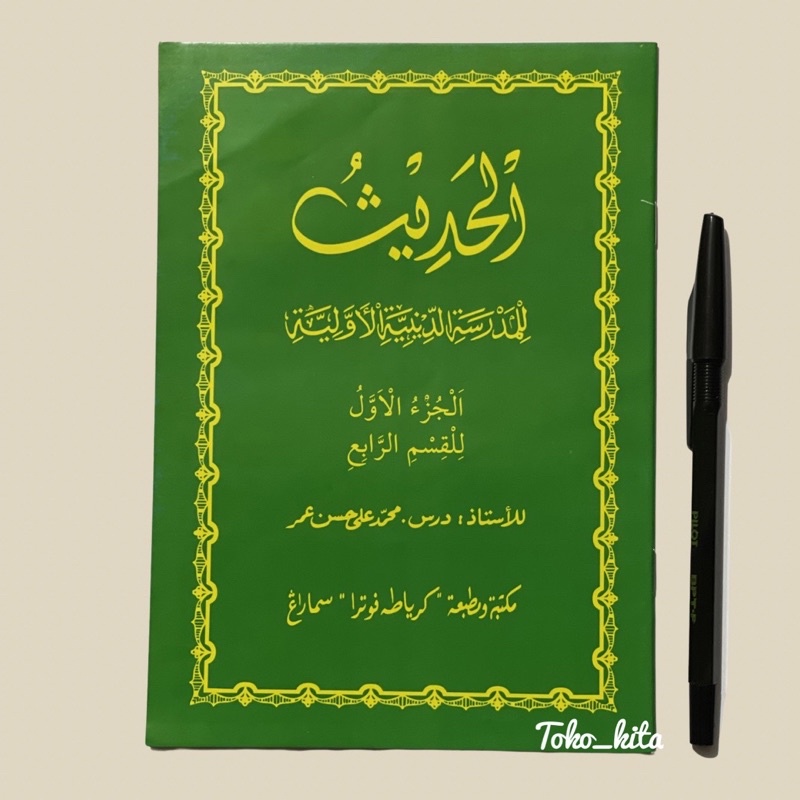 اَلْحَدِيْثُ
لِلْمَدْرَسَةِ الدِّيْنِيَّةِ الْأَوَّلِيَّةِ
اَلْجُزْءُ الْاَوَّلُ
لِلْقِسْمِ الرَّابِعِ
للأستاذ : درس. محمّد علي حسن عمر
مكتبة ومطبعة "كرياطه فوترا" سماراڠ
PILOT BPT-P
Toko_kita